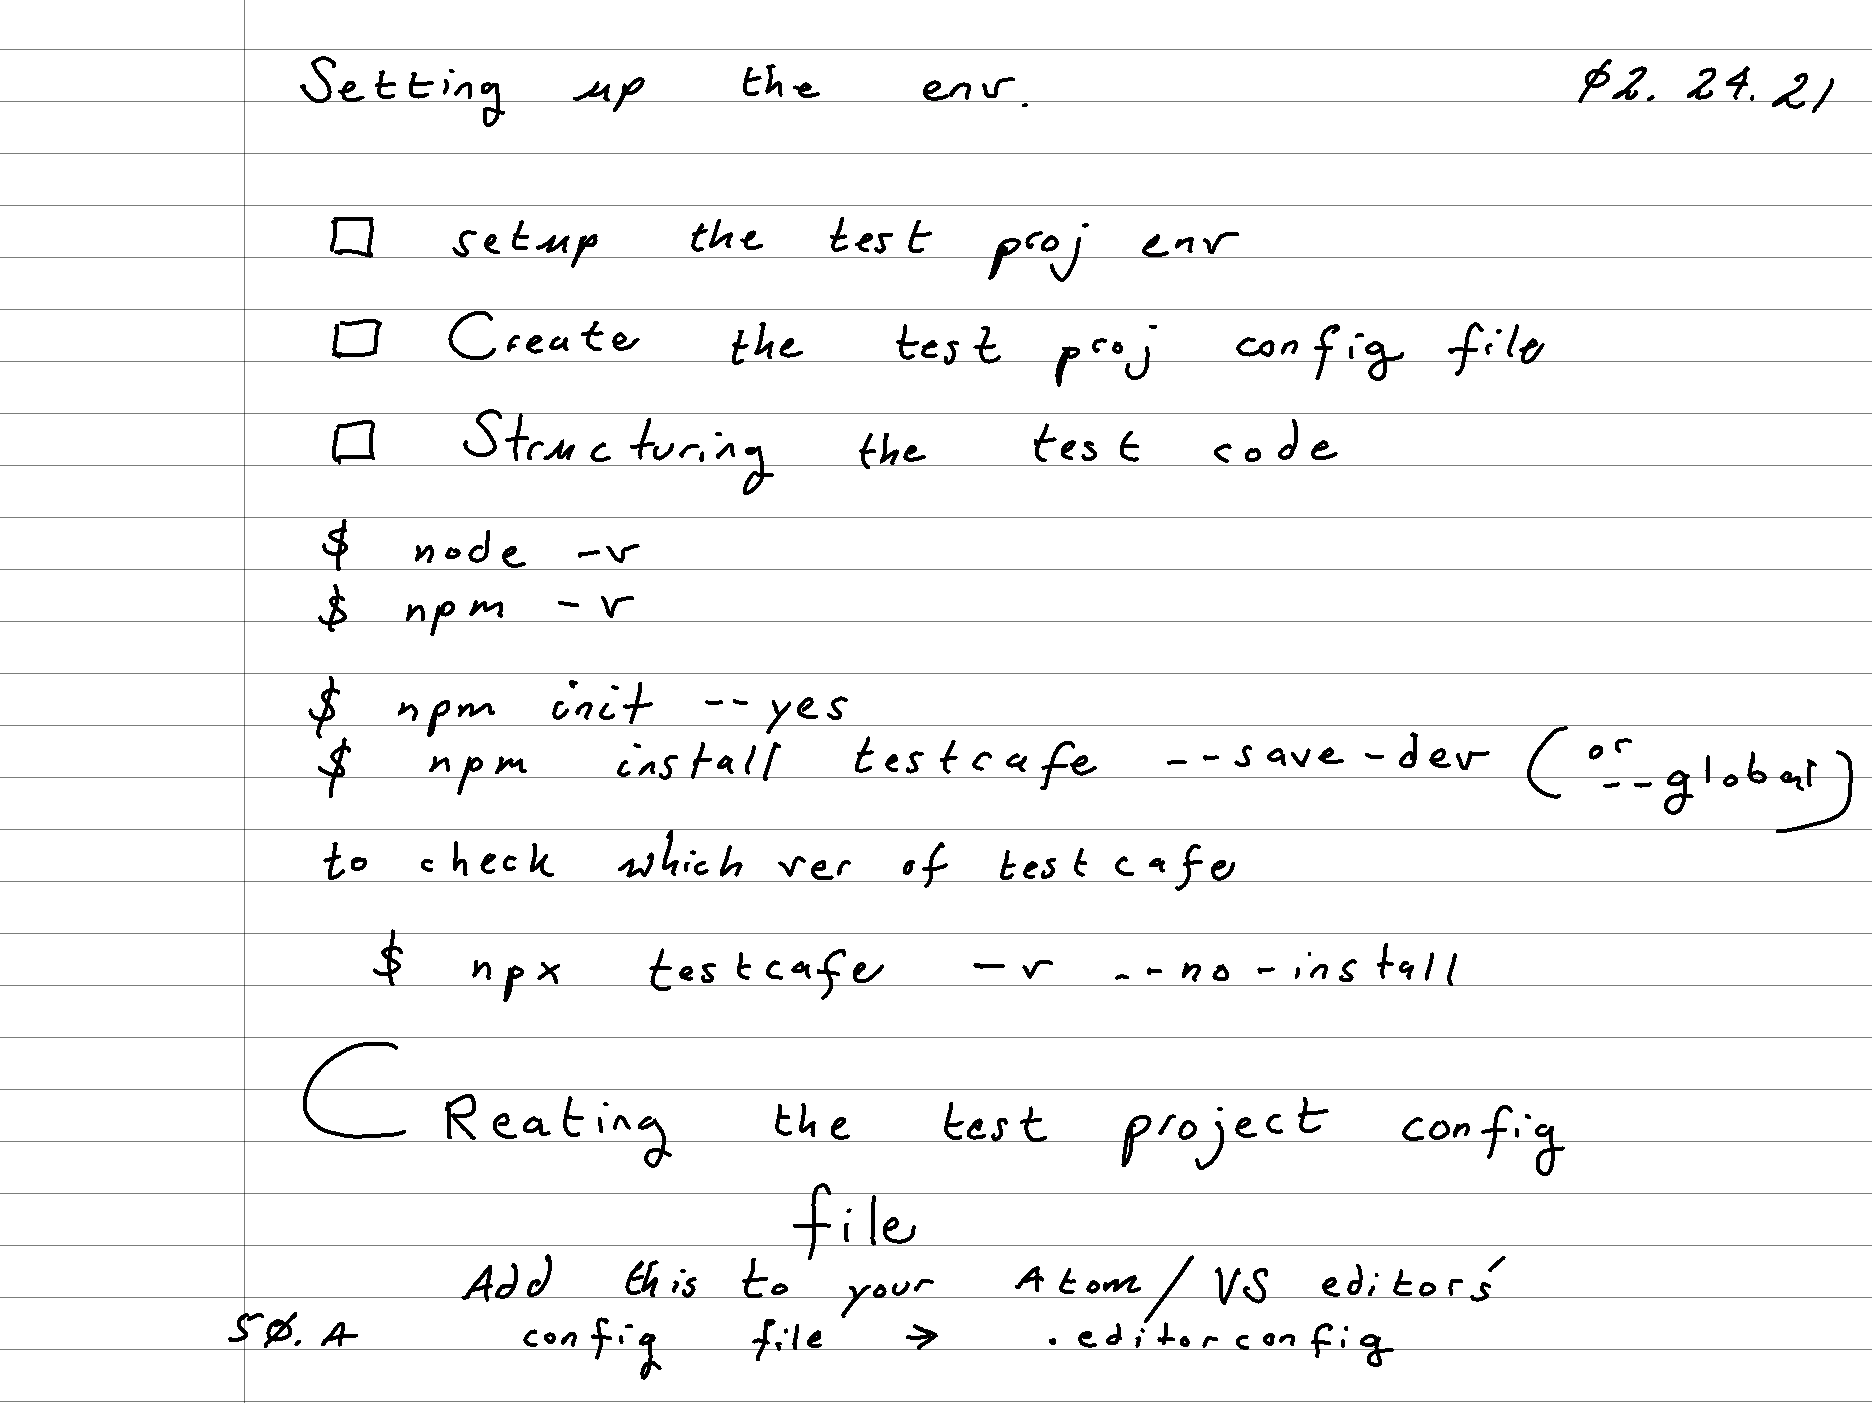 Setting up the env. 02.24.21
☐ setup the test proj env
☐ Create the test proj config file
☐ Structuring the test code
$ node -v
$ npm -v
$ npm init --yes
$ npm install testcafe --save-dev (or --global)
to check which ver of testcafe
$ npx testcafe -v --no-install
CReating the test project config
file
Add this to your Atom/VS editors'
50.A config file → .editorconfig